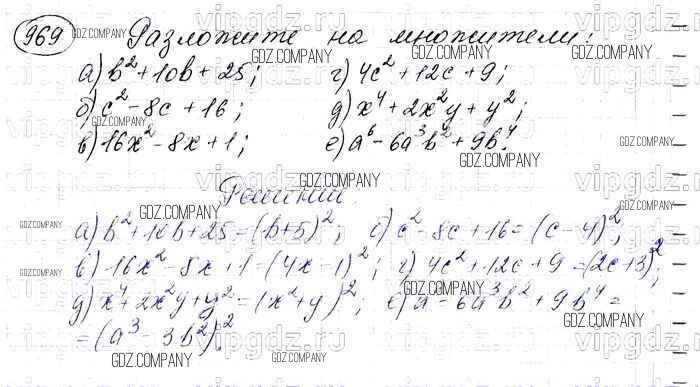 969 Разложите на множители:
а) b² + 10b + 25; г) 4c² + 12c + 9;
б) c² - 8c + 16; д) x⁴ + 2x²y + y²;
в) 16x² - 8x + 1; е) a⁶ - 6a³b² + 9b⁴.
Решение.
а) b² + 10b + 25 = (b+5)²; б) c² - 8c + 16 = (c-4)²;
в) 16x² - 8x + 1 = (4x-1)²; г) 4c² + 12c + 9 = (2c+3)²;
д) x⁴ + 2x²y + y² = (x²+y)²; е) a⁶ - 6a³b² + 9b⁴ =
= (a³ - 3b²)².
GDZ.COMPANY
vipgdz.com